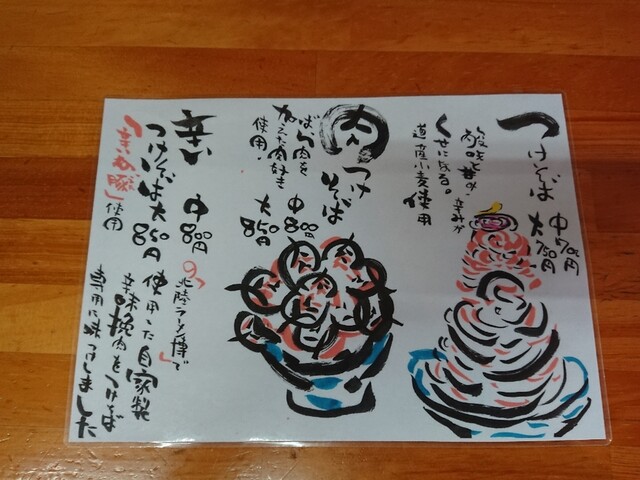 つけそば
中700円
大750円
酸味 甘み 辛みが
くせになる。
道産小麦使用
肉つけそば
中800円
大850円
ばら肉を
加えた肉好き
使用。
辛い
つけそば
中800円
大850円
「辛め豚」使用
の「北陸ラーメン博」で
使用した自家製
辛味挽肉をつけそば
専用に味つけしました